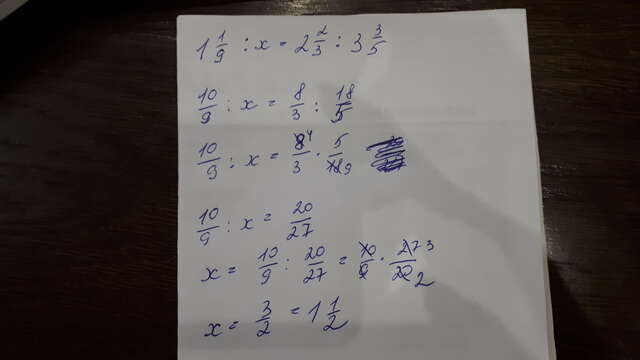 1 1/9 : x = 2 2/3 : 3 3/5
10/9 : x = 8/3 : 18/5
10/9 : x = 8 4/3 · 5/18 9
10/9 : x = 20/27
x = 10/9 : 20/27 = 10/9 · 27 3/20 2
x = 3/2 = 1 1/2